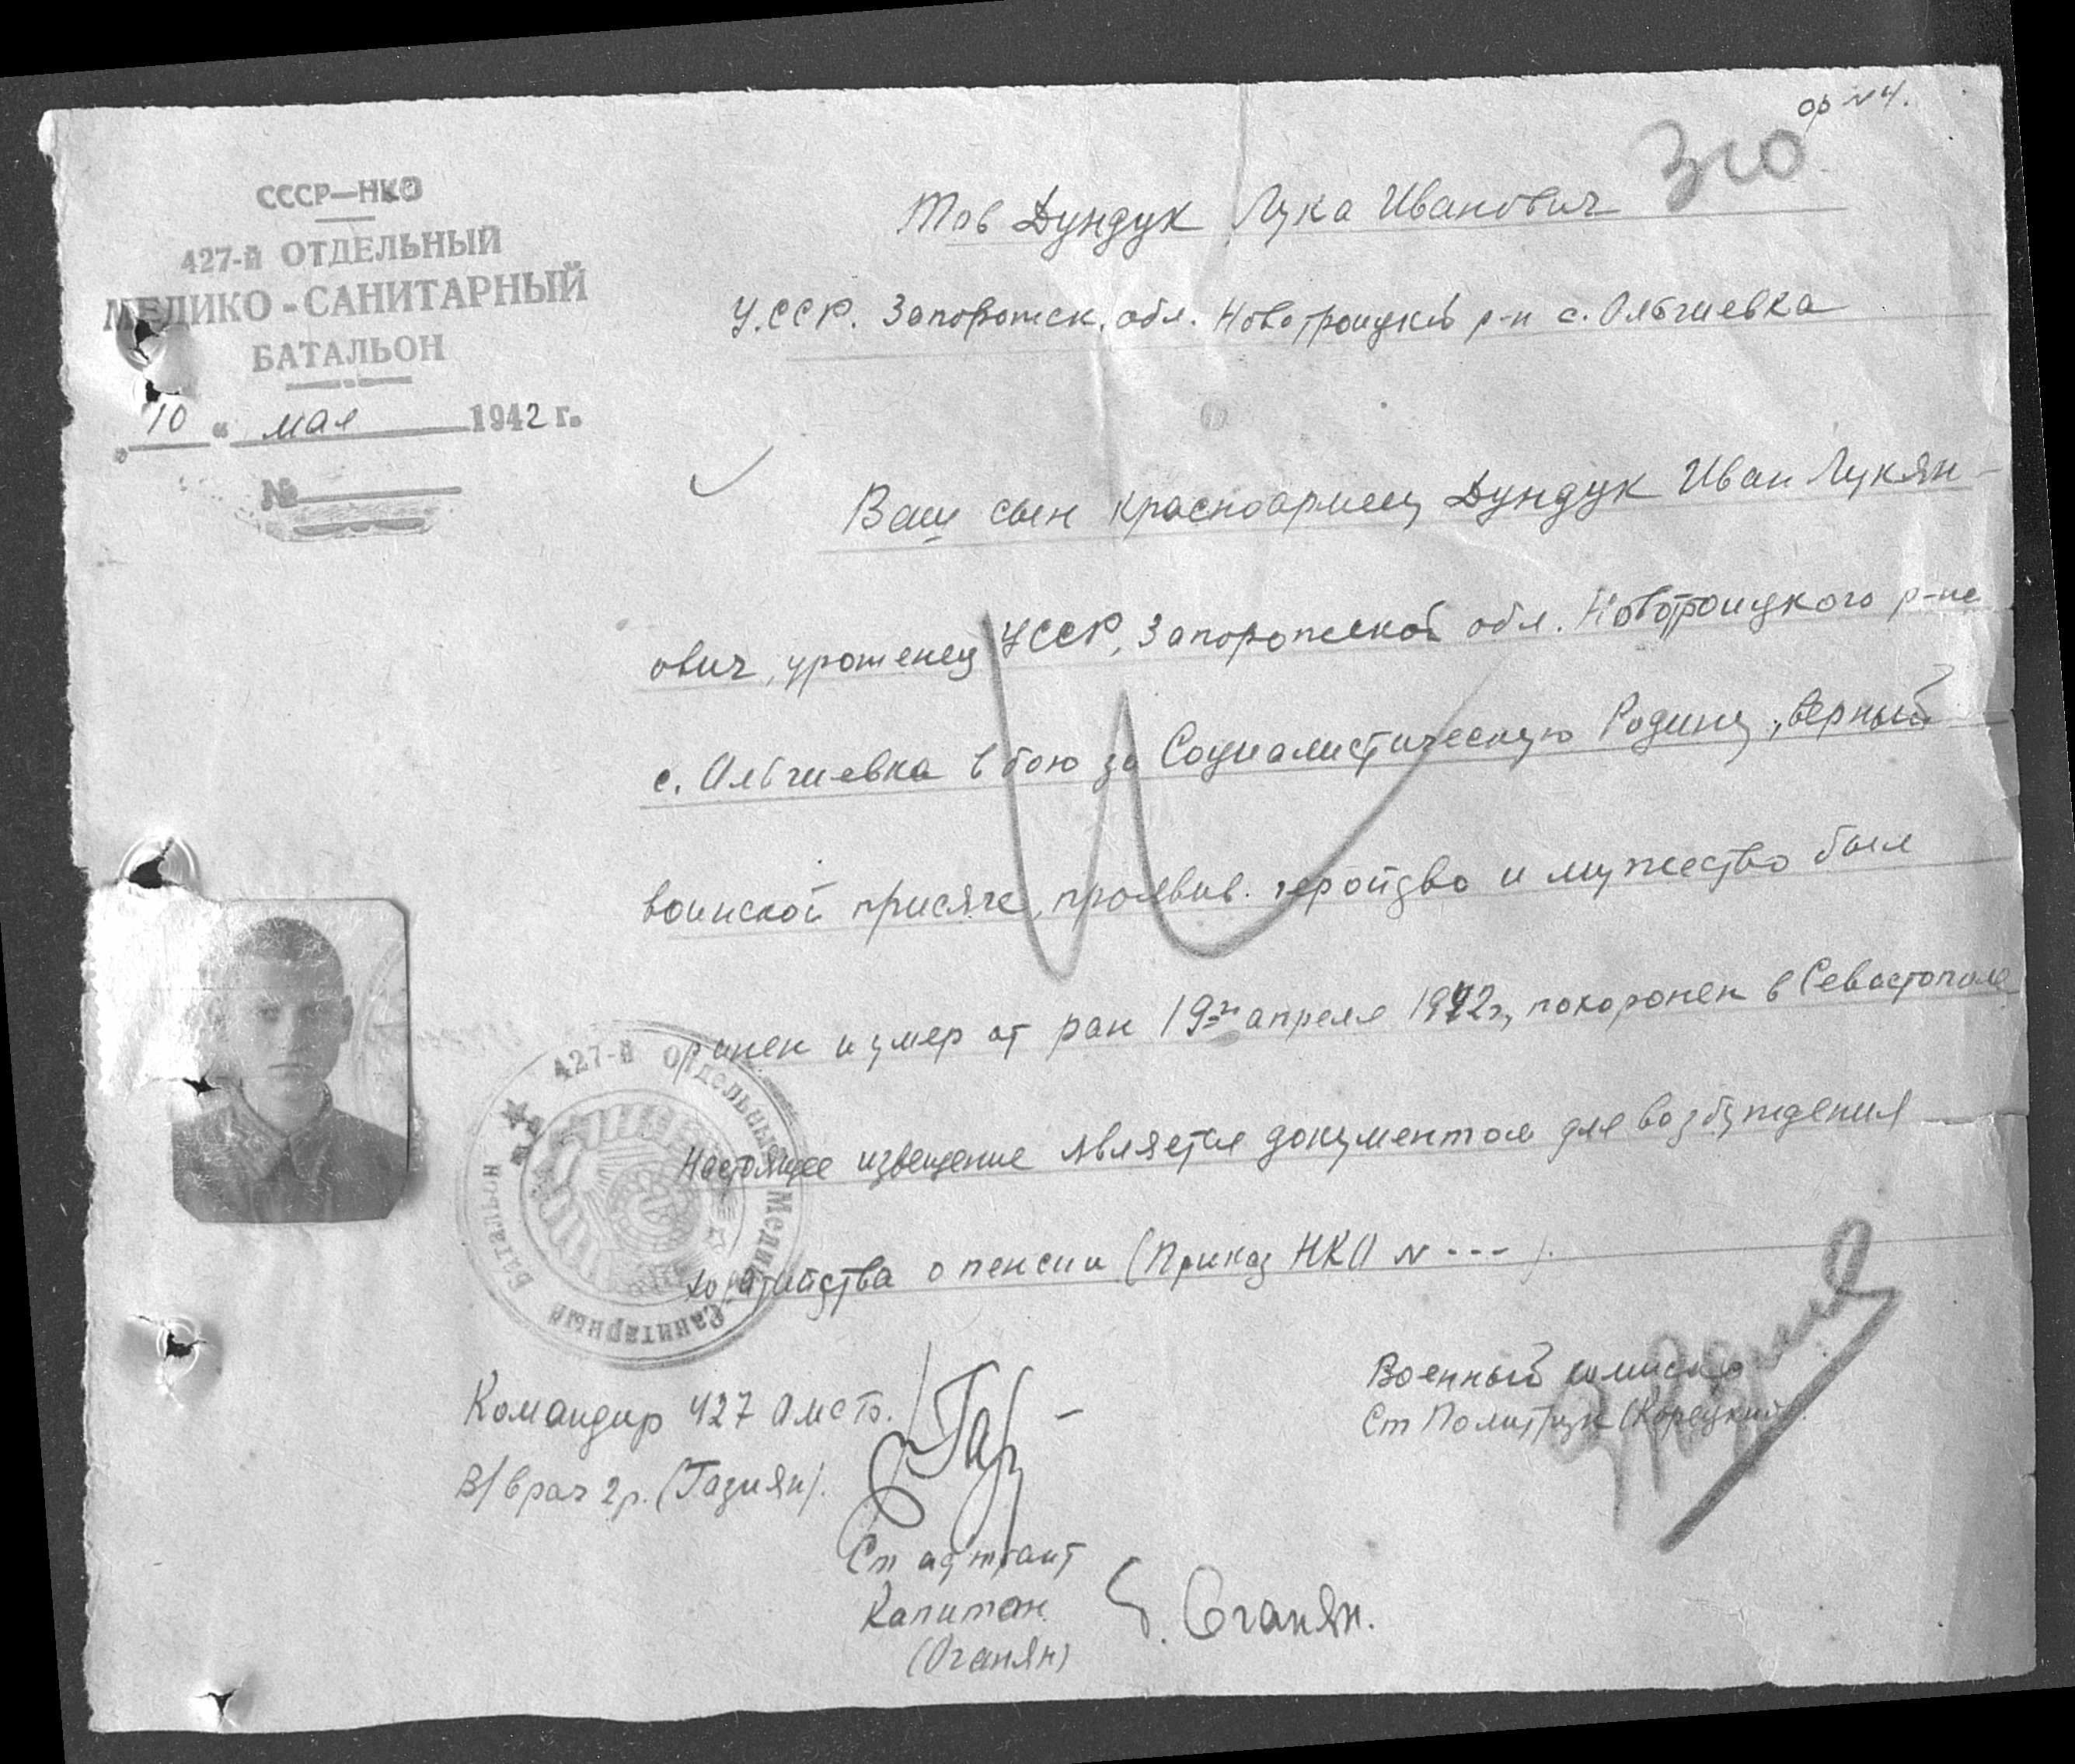 ор №4.
310
СССР—НКО
427-й ОТДЕЛЬНЫЙ
МЕДИКО-САНИТАРНЫЙ
БАТАЛЬОН
"10" мая 1942 г.
№
Тов Дундук Лука Иванович
У.ССР. Запорожск. обл. Новотроицкий р-н с. Ольгиевка
Ваш сын красноармеец Дундук Иван Лукян-
ович, уроженец УССР, Запорожской обл. Новотроицкого р-на
с. Ольгиевка в бою за Социалистическую Родину, верный
воинской присяге, проявив. геройзво и мужество был
ранен и умер от ран 19-го апреля 1942г, похоронен в Севастополе
Настоящее извещение является документом для возбуждения
ходатайства о пенсии (Приказ НКО № ---).
427-й Отдельный Медико-Санитарный Батальон
Командир 427 Омсб.
В/врач 2р. (Газиян).
Военный комиссар
Ст Политрук (Корецкий).
Ст адтютант
Капитан
(Оганян)
Оганян.